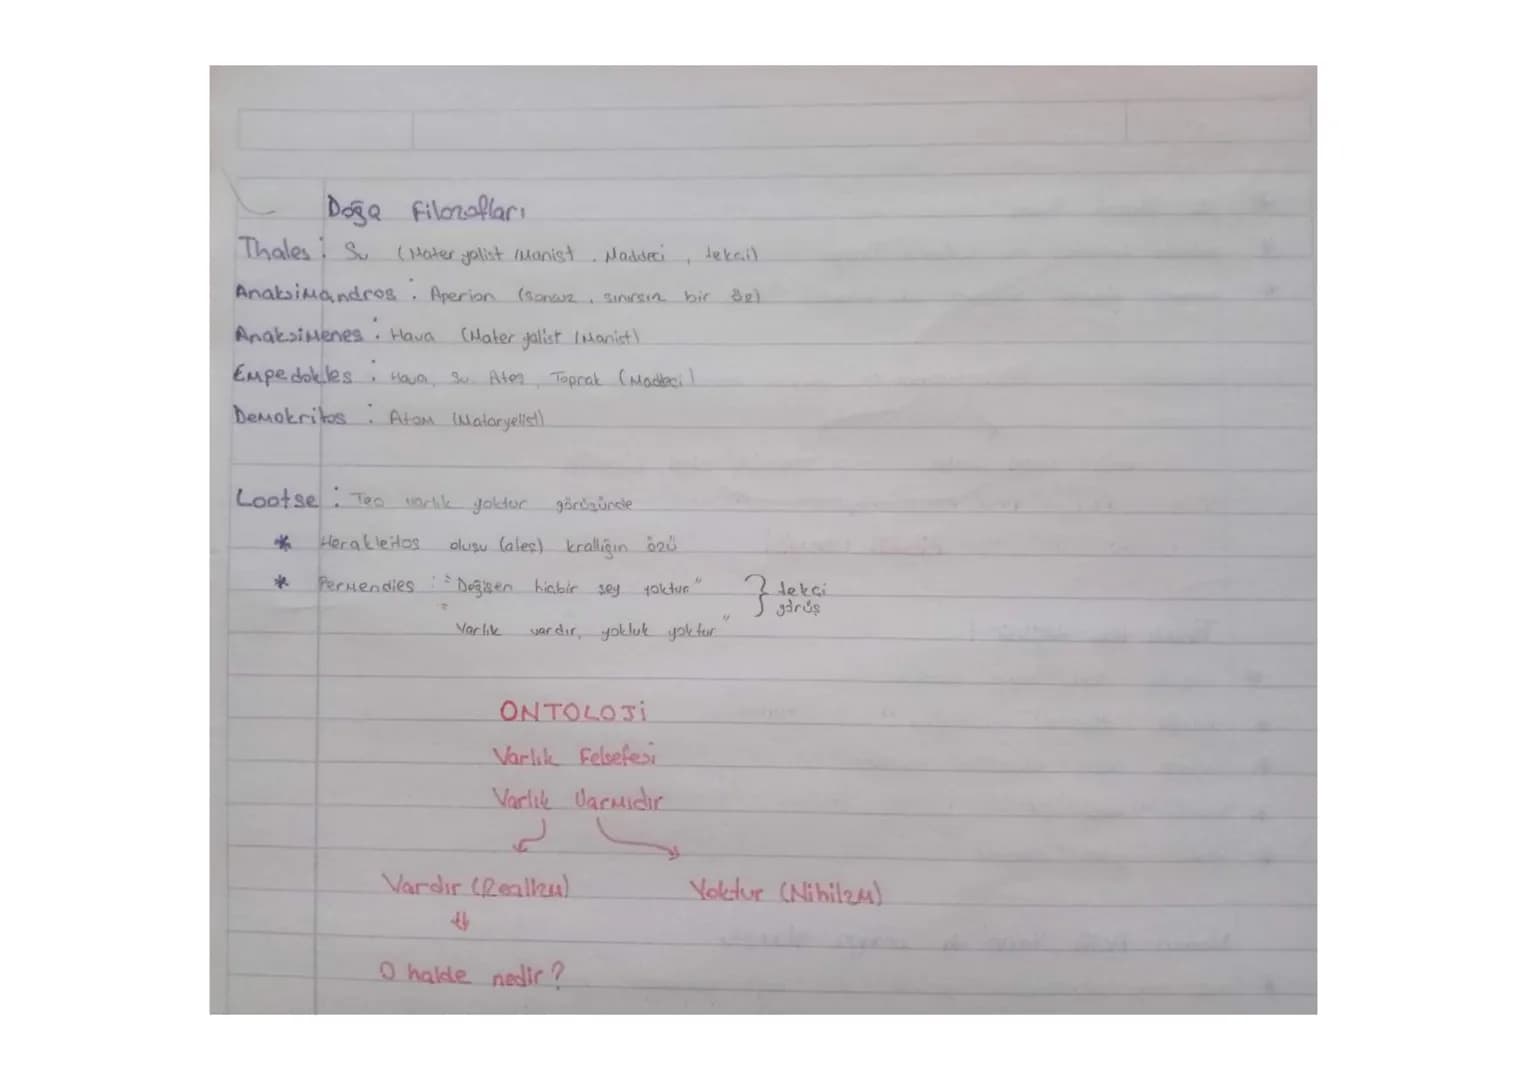 Doğa Filozofları
Thales : Su (Mater yalist / Manist, Maddeci, tekçil)
Anaksimandros : Aperion (sonsuz, sınırsız bir öz)
Anaksimenes : Hava (Mater yalist / Manist)
Empedokles : Hava, Su, Ateş, Toprak (Maddeci)
Demokritos : Atom (Mataryelist)
Lootse : Tao varlık yoktur görüşünde
* Herakleitos oluşu (ateş) krallığın özü
* Permendies : "Değişen hiçbir şey yoktur" } tekçi görüş
"Varlık vardır, yokluk yoktur"
ONTOLOJİ
Varlık Felsefesi
Varlık Varmıdır
Vardır (Realizm) Yoktur (Nihilzm)
O halde nedir?